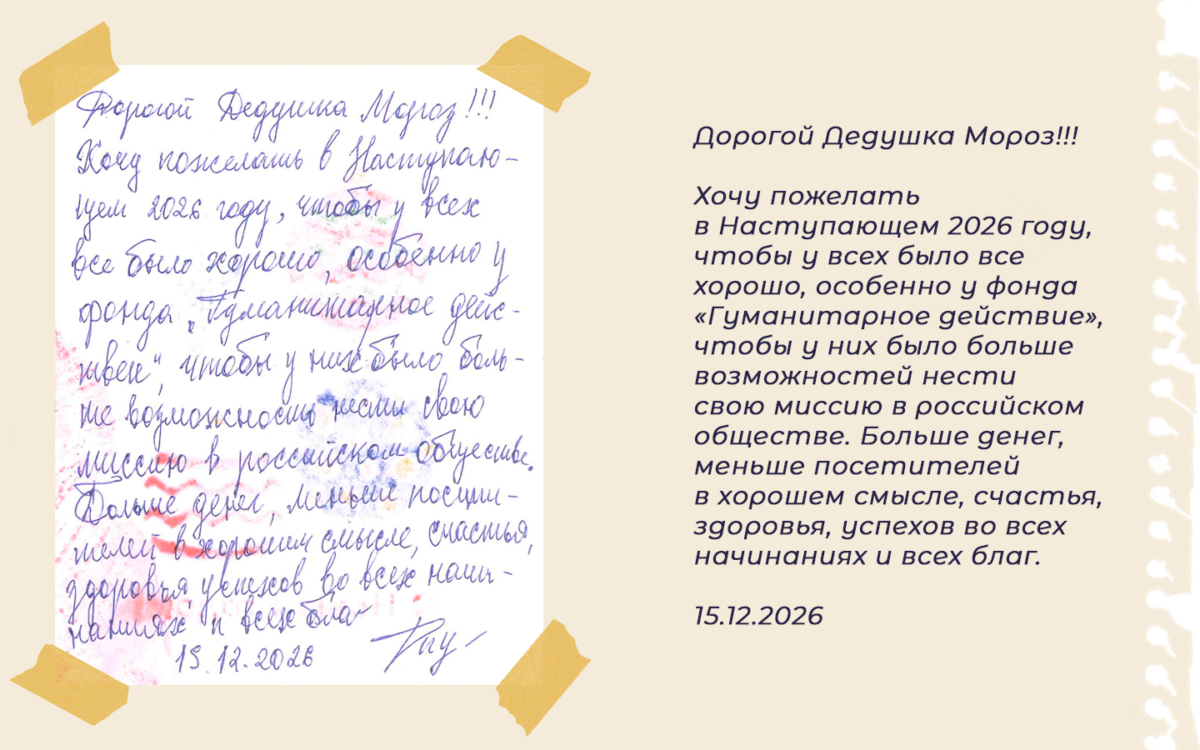 Дорогой Дедушка Мороз!!!
Хочу пожелать в Наступаю-
щем 2026 году, чтобы у всех
все было хорошо, особенно у
фонда „Гуманитарное дейс-
твие“, чтобы у них было боль-
ше возможность нести свою
миссию в российском обществе.
Больше денег, меньше посети-
телей в хорошем смысле, счастья,
здоровья, успехов во всех начи-
наниях и всех благ
15.12.2026
Дорогой Дедушка Мороз!!!
Хочу пожелать
в Наступающем 2026 году,
чтобы у всех было все
хорошо, особенно у фонда
«Гуманитарное действие»,
чтобы у них было больше
возможностей нести
свою миссию в российском
обществе. Больше денег,
меньше посетителей
в хорошем смысле, счастья,
здоровья, успехов во всех
начинаниях и всех благ.
15.12.2026